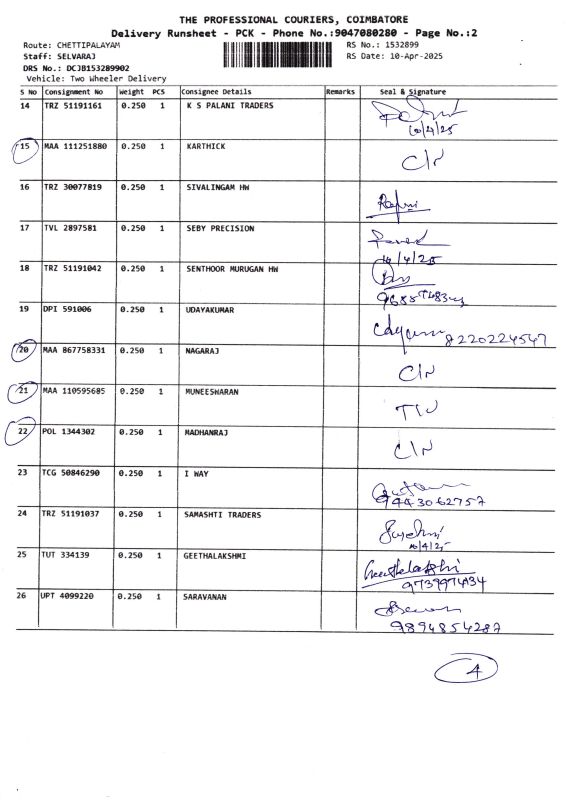 THE PROFESSIONAL COURIERS, COIMBATORE
Delivery Runsheet - PCK - Phone No.:9047080280 - Page No.:2
Route: CHETTIPALAYAM RS No.: 1532899
Staff: SELVARAJ RS Date: 10-Apr-2025
DRS No.: DCJB153289902
Vehicle: Two Wheeler Delivery
S No Consignment No Weight PCS Consignee Details Remarks Seal & Signature
14 TRZ 51191161 0.250 1 K S PALANI TRADERS
10/4/25
15 MAA 111251880 0.250 1 KARTHICK
16 TRZ 30077819 0.250 1 SIVALINGAM HW
17 TVL 2897581 0.250 1 SEBY PRECISION
10/4/25
18 TRZ 51191042 0.250 1 SENTHOOR MURUGAN HW
19 DPI 591006 0.250 1 UDAYAKUMAR
8220224547
20 MAA 867758331 0.250 1 NAGARAJ
21 MAA 110595685 0.250 1 MUNEESWARAN
22 POL 1344302 0.250 1 MADHANRAJ
23 TCG 50846290 0.250 1 I WAY
9443062757
24 TRZ 51191037 0.250 1 SAMASHTI TRADERS
10/4/25
25 TUT 334139 0.250 1 GEETHALAKSHMI
26 UPT 4099220 0.250 1 SARAVANAN
9894854287
4